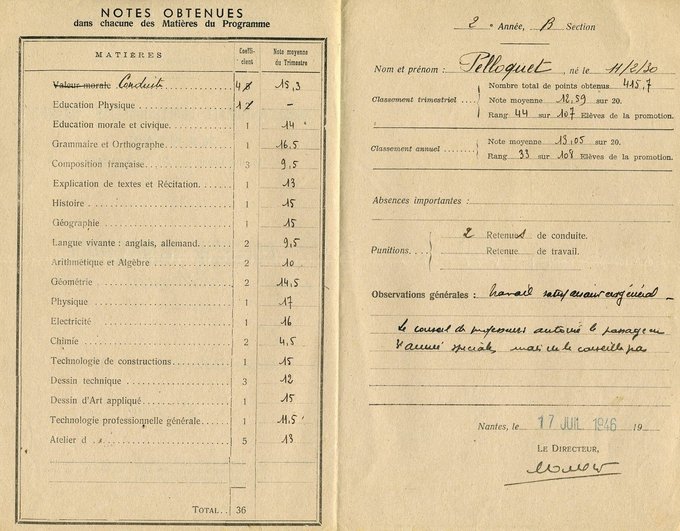 NOTES OBTENUES
dans chacune des Matières du Programme
MATIÈRES Coeffi-cient Note moyenne du Trimestre
Valeur morale Conduite 4 15,3
Education Physique 1 –
Education morale et civique 1 14
Grammaire et Orthographe 1 16,5
Composition française 3 9,5
Explication de textes et Récitation 1 13
Histoire 1 15
Géographie 1 15
Langue vivante : anglais, allemand 2 9,5
Arithmétique et Algèbre 2 10
Géométrie 2 14,5
Physique 1 17
Electricité 1 16
Chimie 2 4,5
Technologie de constructions 1 15
Dessin technique 3 12
Dessin d'Art appliqué 1 15
Technologie professionnelle générale 1 11,5
Atelier d 5 13
TOTAL 36
2e Année, B Section
Nom et prénom : Pelloquet, né le 11/2/30
Nombre total de points obtenus 415,7
Classement trimestriel Note moyenne 12,59 sur 20.
Rang 44 sur 107 Elèves de la promotion.
Classement annuel Note moyenne 13,05 sur 20
Rang 33 sur 108 Elèves de la promotion.
Absences importantes :
2 Retenues de conduite.
Punitions.
Retenue de travail.
Observations générales : travail satisfaisant en général
Le conseil de professeurs autorise le passage en
année spéciale, mais ne le conseille pas
Nantes, le 17 JUIL 1946 19
LE DIRECTEUR,